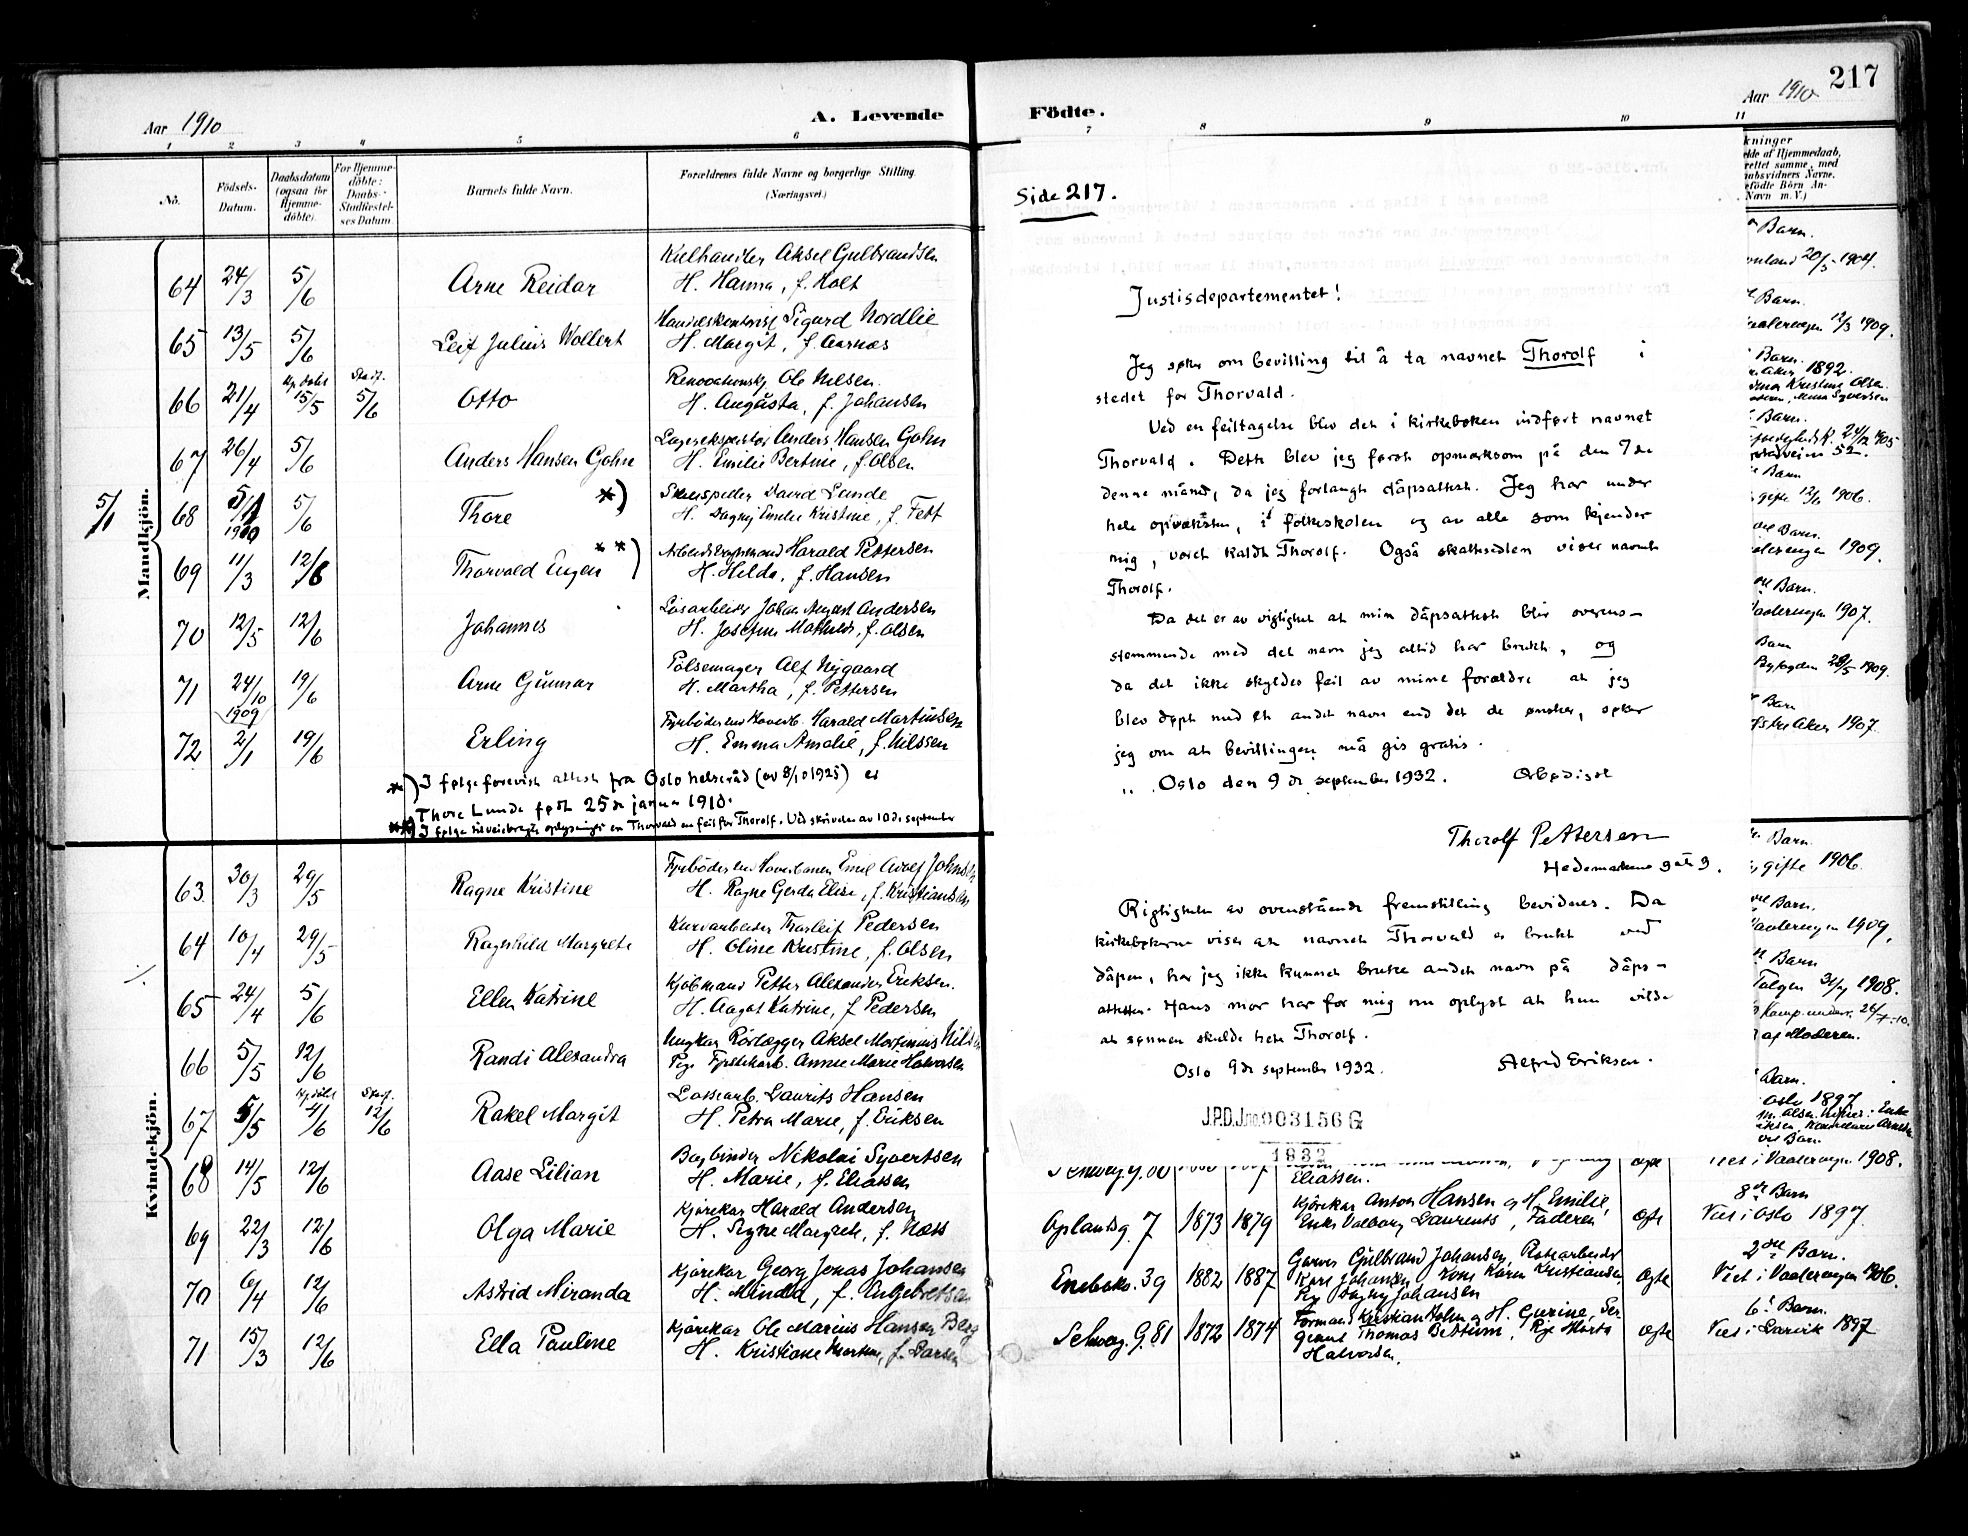 Aar 1910
A. Levende
Födte.
Aar 1910
217
1 2 3 4 5 6 7 8 9 10 11
No.
Födsels-Datum.
Daabsdatum (ogsaa for Hjemme-döbte).
For Hjemme-döbte: Daabs-Stadfæstel-ses Datum.
Barnets fulde Navn.
Forældrenes fulde Navne og borgerlige Stilling
(Næringsvei.)
Mandkjön.
64 24/3 5/6 Arne Reidar
Kulhandler Aksel Gulbrandsen
H. Hanna, f. Holt
65 13/5 5/6 Leif Julius Wollert
Sigurd Nordlie
H. Margit, f. Aarnæs
66 21/4 Hj. døbt 15/5 Stadf. 5/6 Otto
Renovationskj. Ole Nilsen
H. Augusta, f. Johansen
67 26/4 5/6 Anders Hansen Gohn
Lagerekspeditør Anders Hansen Gohn
H. Emilie Bertine, f. Olsen
5/1 68 5/1 1910 5/6 Thore *)
Skuespiller David Lunde
H. Dagny Emilie Kristine, f. Fett
69 11/3 12/6 Thorvald Eugen **)
Harald Pettersen
H. Hilda, f. Hansen
70 12/5 12/6 Johannes
Løsarbeider Johan August Andersen
H. Josefine Mathilde, f. Olsen
71 24/10 1909 19/6 Arne Gunnar
Pølsemager Alf Nygaard
H. Martha, f. Pettersen
72 2/1 19/6 Erling
Harald Martinsen
H. Emma Amalie, f. Nilssen
*) I følge forevist attest fra Oslo helseråd (av 8/10 1925) er
Thore Lunde født 25de januar 1910.
**) I følge tilveiebragte oplysninger er Thorvald en feil for Thorolf. Ved skrivelse av 10de september
Kvindekjön.
63 30/3 29/5 Ragne Kristine
Emil Adolf Johnsen
H. Ragne Gerda Elise, f. Kristiansen
64 10/4 29/5 Ragnhild Margrete
Kurvarbeider Thorleif Pedersen
H. Oline Kristine, f. Olsen
65 24/4 5/6 Ellen Katrine
Kjøbmand Petter Alexander Eriksen.
H. Aagot Katrine, f. Pedersen
66 5/5 12/6 Randi Alexandra
Ungkar Rørlægger Aksel Martinius Nilsen
Pige Fyrstikarb. Anna Marie Halvorsen
67 5/5 Hj. døbt 4/6 Stadf. 12/6 Rakel Margit
Lossearb. Laurits Hansen
H. Petra Marie, f. Eriksen
68 14/5 12/6 Aase Lilian
Bogbinder Nikolai Syvertsen
H. Marie, f. Eliassen
69 22/3 12/6 Olga Marie
Kjørekar Harald Andersen
H. Signe Margrete, f. Næss
70 6/4 12/6 Astrid Miranda
Kjørekar Georg Jonas Johansen
H. Minda, f. Engebretsen
71 15/3 12/6 Ella Pauline
Kjørekar Ole Marius Hansen Berg
H. Kristiane Marthea, f. Larsen
Side 217.
Justisdepartementet!
Jeg søker om bevilling til å ta navnet Thorolf i
stedet for Thorvald.
Ved en feiltagelse blev det i kirkeboken indført navnet
Thorvald. Dette blev jeg først opmerksom på den 7de
denne måned, da jeg forlangte dåpsattest. Jeg har under
hele opveksten, i folkeskolen og av alle som kjender
mig, været kaldt Thorolf. Også skatteseddelen viser navnet
Thorolf.
Da det er av vigtighet at min dåpsattest blir overens-
stemmende med det navn jeg altid har brukt, og
da det ikke skyldes feil av mine forældre at jeg
blev døpt med et andet navn end det de ønsker, søker
jeg om at bevillingen må gis gratis.
Oslo den 9de september 1932. Ærbødigst
Thorolf Pettersen
Hedemarkens gate 9.
Rigtigheten av ovenstående fremstilling bevidnes. Da
kirkebøkerne viser at navnet Thorvald er brukt ved
dåpen, har jeg ikke kunnet bruke andet navn på dåps-
attesten. Hans mor har for mig nu oplyst at hun vilde
at sønnen skulde hete Thorolf.
Oslo 9de september 1932. Alfred Eriksen.
J.P.D.J.no. 003156 G
1932
kninger
lde af Hjemmedaab,
rettet samme, med
aabsvidners Navne.
efödte Börn An-
Navn m.V.)
Barn.
20/5 1904.
Barn.
12/3 1909.
Barn.
Aker 1892.
Kristine Olsen
Barn.
24/2 1905
52.
Barn
gifte 12/6 1906.
Barn.
1909.
Barn.
Vaalerengen 1907.
Barn
28/5 1909.
Barn
Aker 1907.
Barn.
gifte 1906.
Barn.
Vaalerengen 1909.
Barn
1908.
af Moderen.
Barn.
Oslo 1897
Barn
Viet i Vaalerengen 1908.
Eliassen.
Ægte
Oplandsg. 7 1873 1879
Kjørekar Anton Hansen og H. Emilie,
Enke Valborg Laurents, Faderen
Ægte
8de Barn
Viet i Oslo 1897.
Eneboko. 39 1882 1887
Garver Gulbrand Johansen, Rørarbeider
Kare Johansen, Kone Karen Kristiansen
Pige Dagny Johansen
Ægte
2det Barn.
Viet i Vaalerengen 1906.
Schweg. G. 81 1872 1874
Formand Kristian Holm og H. Gurine, Ser-
geant Thomas Bettum, Pige Marta
Halvorsen.
Ægte
6t Barn.
Viet i Larvik 1897